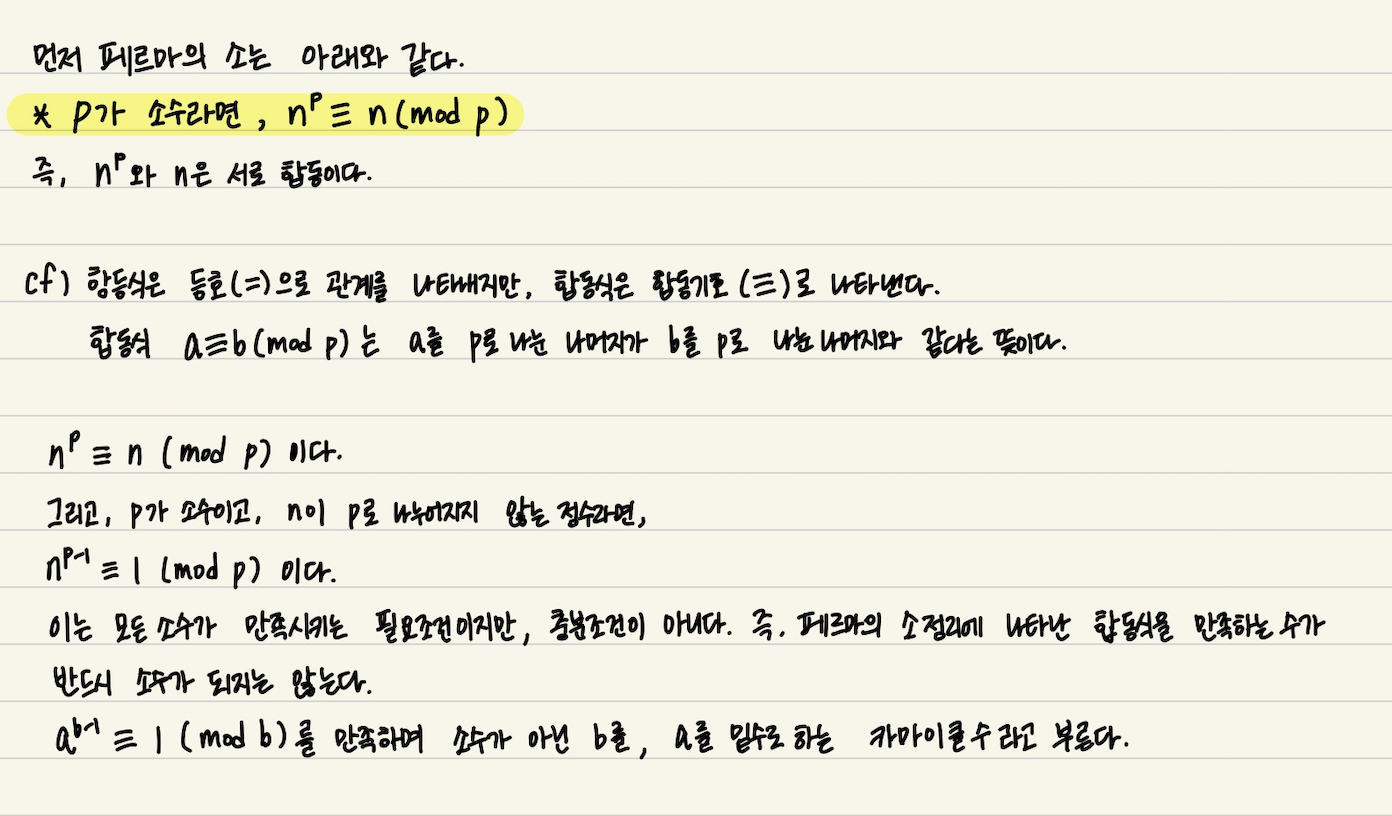 먼저 페르마의 소는 아래와 같다.
* p가 소수라면, n^p ≡ n (mod p)
즉, n^p와 n은 서로 합동이다.
cf) 항등식은 등호(=)으로 관계를 나타내지만, 합동식은 합동기호 (≡)로 나타낸다.
합동식 a≡b (mod p)는 a를 p로 나눈 나머지가 b를 p로 나눈 나머지와 같다는 뜻이다.
n^p ≡ n (mod p) 이다.
그리고, p가 소수이고, n이 p로 나누어지지 않는 정수라면,
n^p-1 ≡ 1 (mod p) 이다.
이는 모든 소수가 만족시키는 필요조건이지만, 충분조건이 아니다. 즉, 페르마의 소정리에 나타난 합동식을 만족하는 수가
반드시 소수가 되지는 않는다.
a^b-1 ≡ 1 (mod b)를 만족하며 소수가 아닌 b를, a를 밑수로 하는 카마이클 수 라고 부른다.